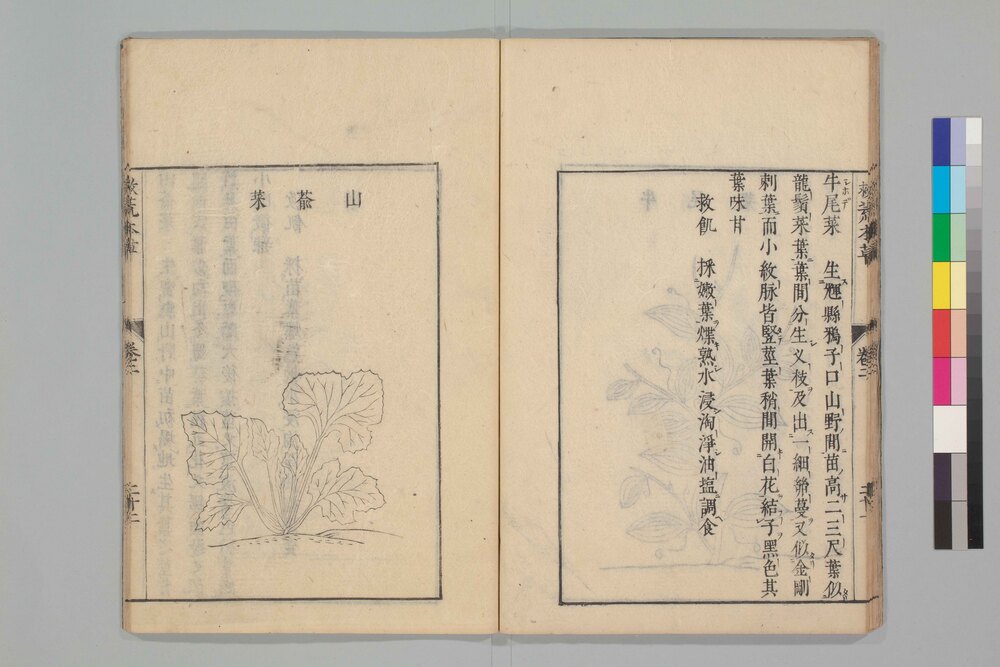 救荒本草 卷二 二十一
牛尾菜 生輝縣鴉子口山野間苗高二三尺葉似
龍鬚菜葉葉間分生叉枝及出一細絲蔓又似金剛
刺葉而小紋脉皆竪莖葉稍間開白花結子黑色其
葉味甘
救飢 採嫩葉煠熟水浸淘淨油塩調食
山萮菜
救荒本草 卷二 二十二